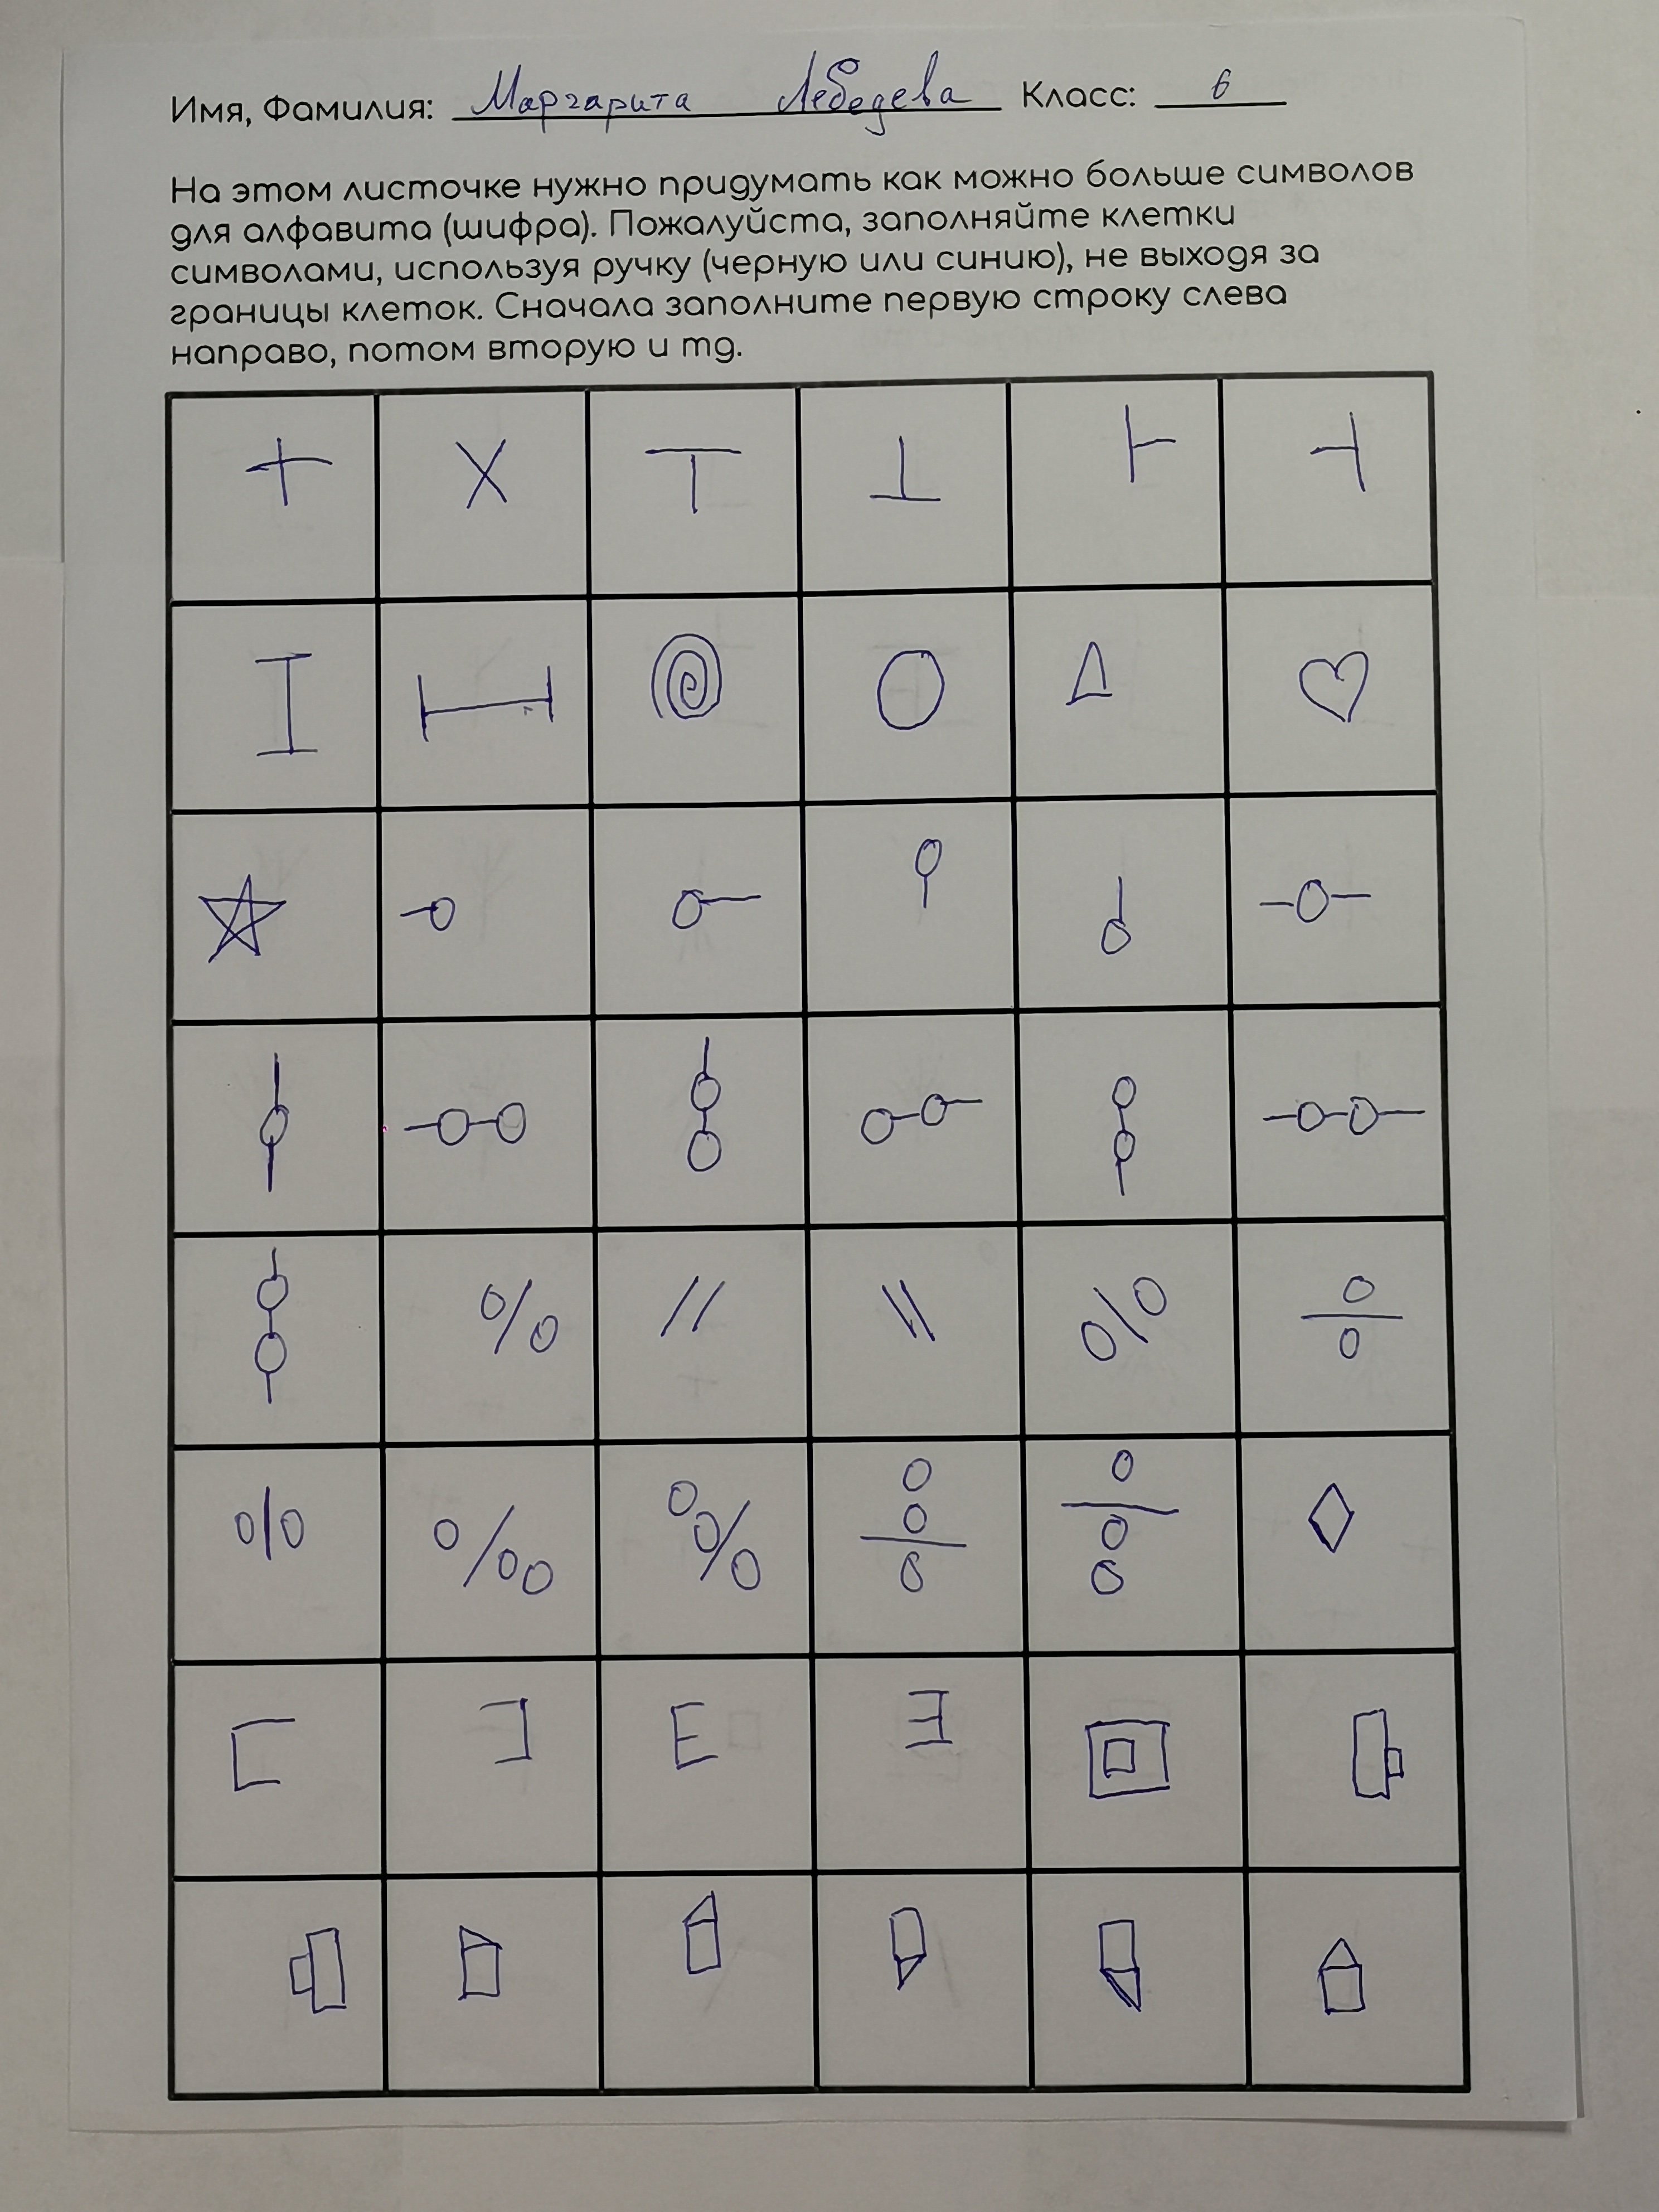 Имя, Фамилия: Маргарита Лебедева Класс: 6
На этом листочке нужно придумать как можно больше символов
для алфавита (шифра). Пожалуйста, заполняйте клетки
символами, используя ручку (черную или синию), не выходя за
границы клеток. Сначала заполните первую строку слева
направо, потом вторую и тд.